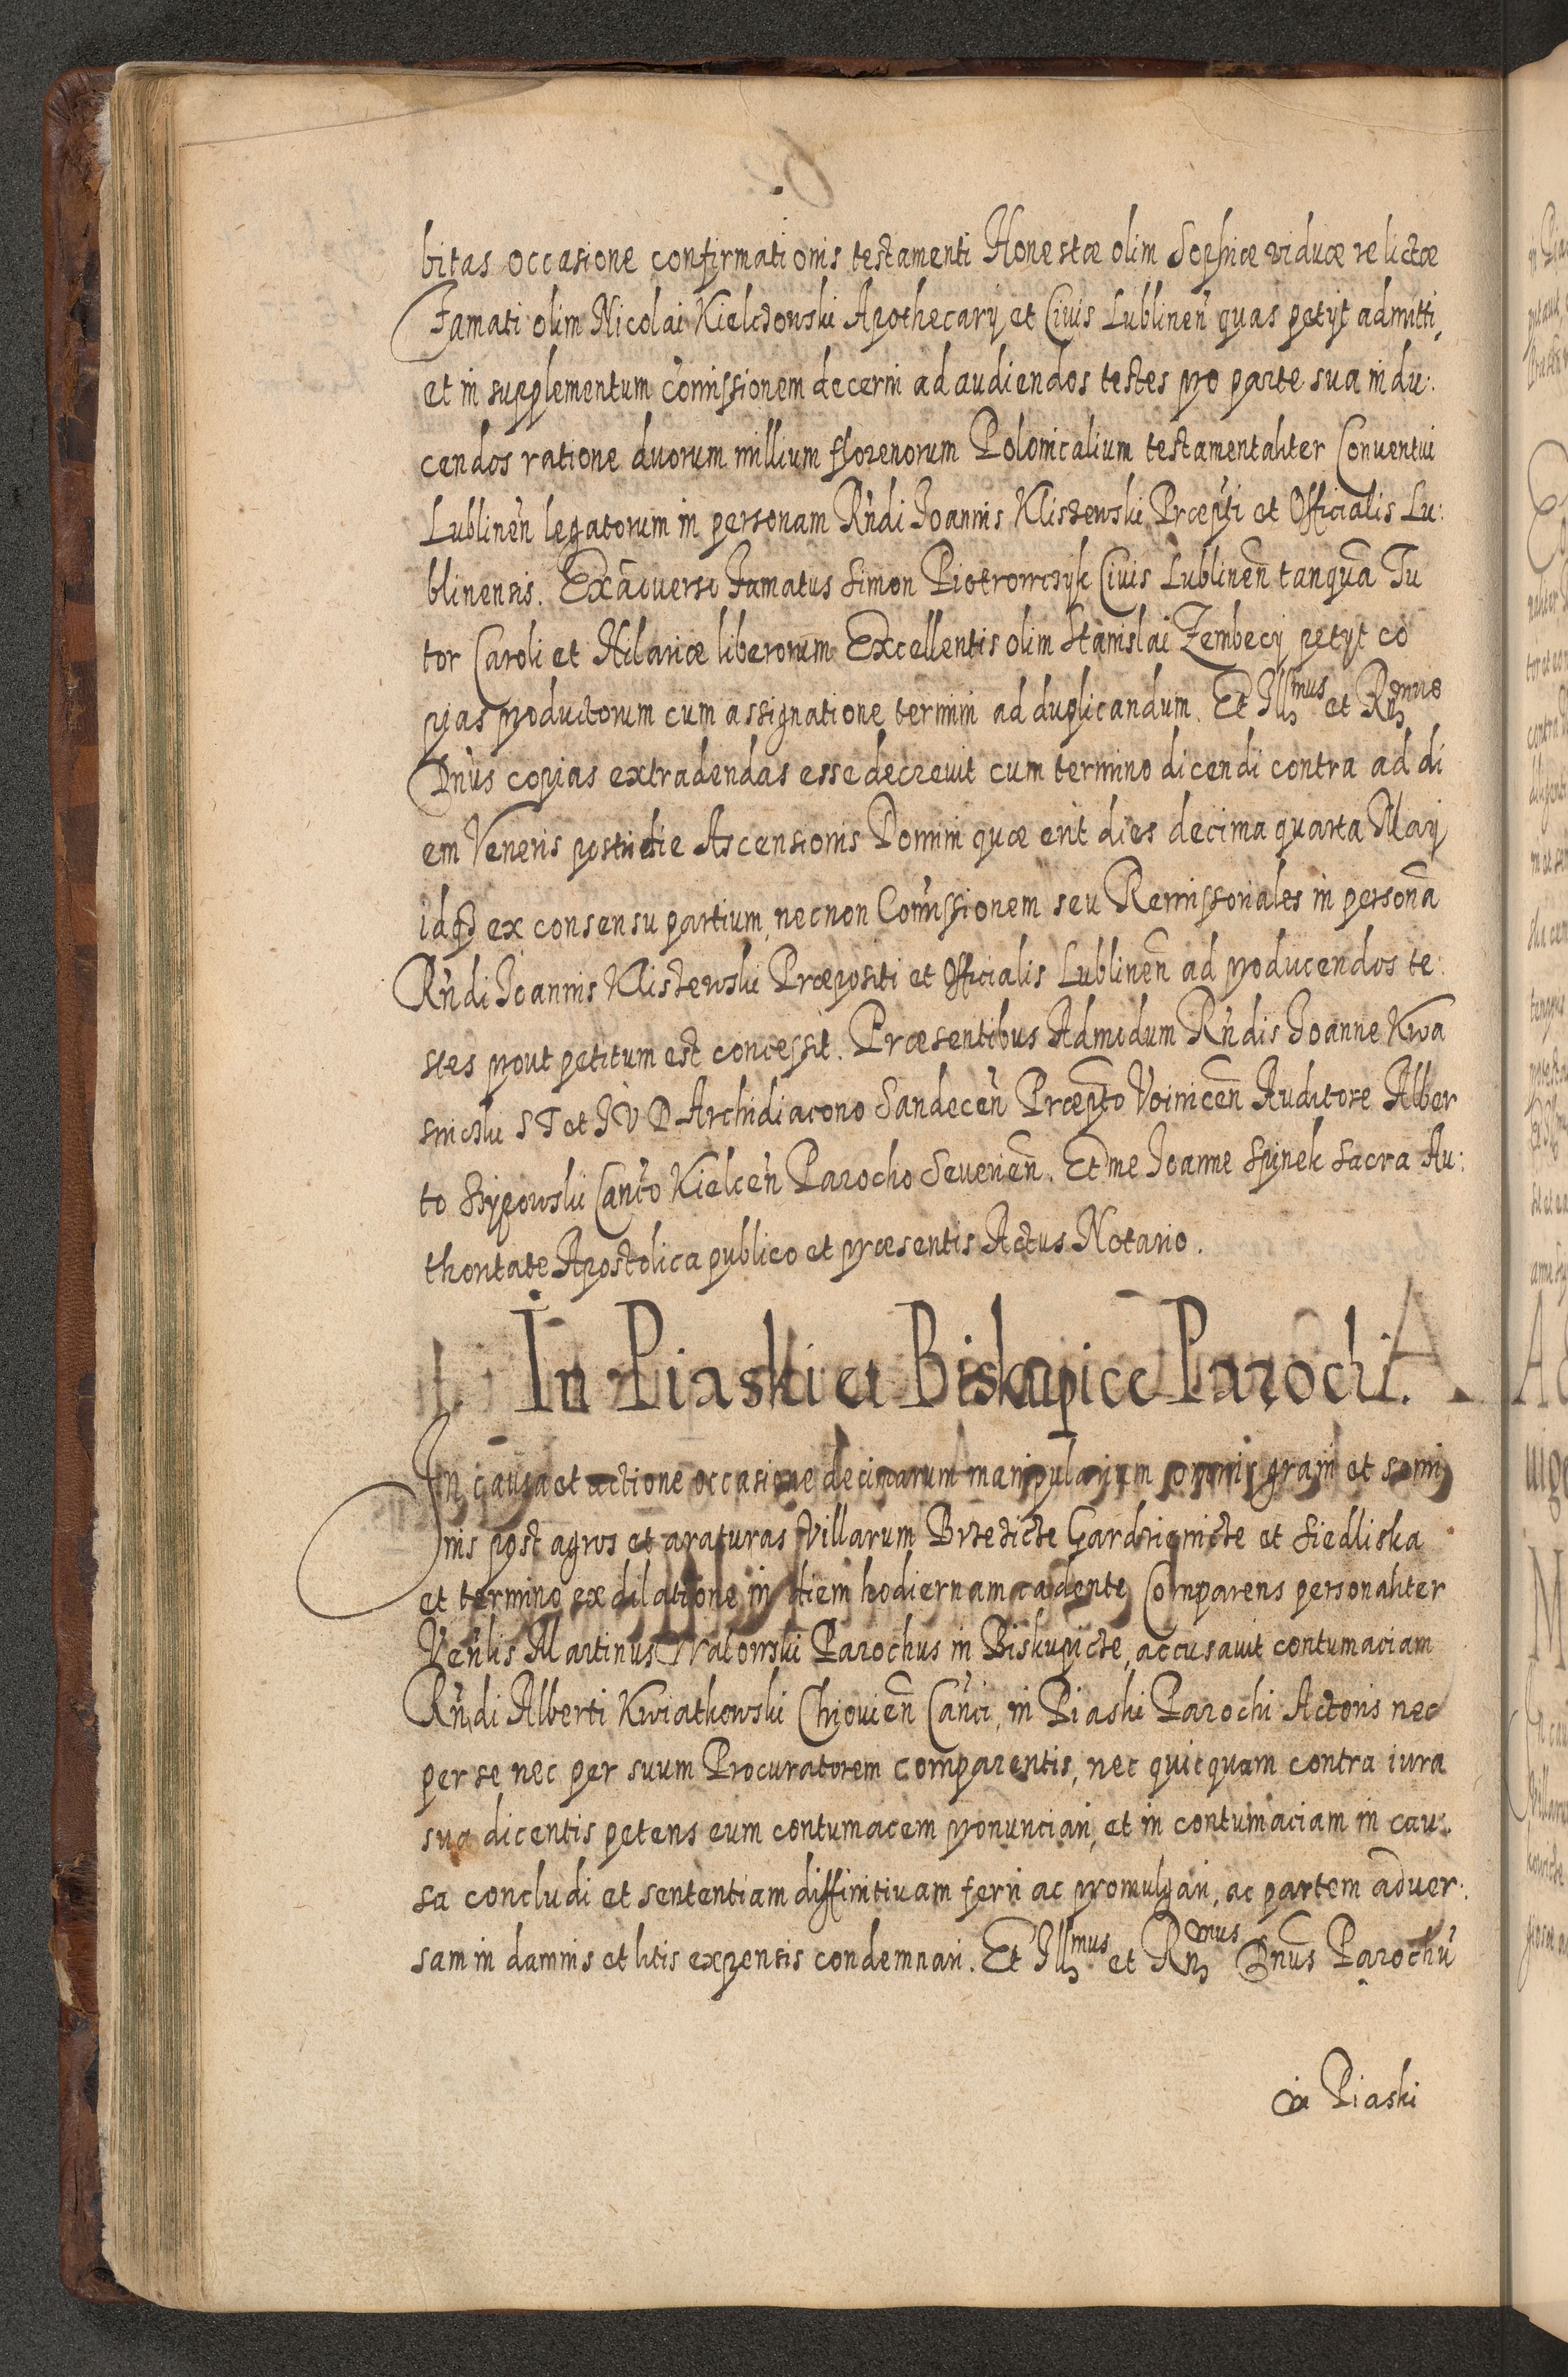 bitas occasione confirmationis testamenti Honestæ olim Sophiæ viduæ relictæ
Famati olim Nicolai Kielczowski Apothecarÿ et Civis Lublinen̄ quas petÿt admitti,
et in supplementum Com̄issionem decerni ad audiendos testes pro parte sua indu:
cendos ratione duorum millium florenorum Polonicalium testamentaliter Conventui
Lublinen̄ legatorum in personam Rn̄di Joannis Kliszewski Præp̄ti et Officialis Lu:
blinensis. Ex adverso Famatus Simon Piotrowczyk Civis Lublinen̄ tanquā Tu
tor Caroli et Hilariæ liberorum Excellentis olim Stanislai Zembecÿ petÿt co
pias productorum cum assignatione termini ad duplicandum. Et Illmus et Rnmus
Dn̄us copias extradendas esse decrevit cum termino dicendi contra ad di
em Veneris postridie Ascensionis Domini quæ erit dies decima quarta Maÿ
idq3 ex consensu partium, necnon Com̄issionem seu Remissoriales in personā
Rn̄di Joannis Kliszewski Præpositi et Officialis Lublinen̄ ad producendos te:
stes prout petitum est concessit. Præsentibus Admodum Rn̄dis Joanne Kwa
snicski S T et J V D Archidiacono Sandecen̄ Præpt̄o Voinicen̄ Auditore Alber
to Szÿpowski Can̄co Kielcen̄ Parocho Severien̄. Et me Joanne Spinek Sacra Au:
thoritate Apostolica publico et præsentis Actus Notario.
In Piaski et Biskupice Parochi.
In causa et actione occasione decimarum manipularium omnis grani et semi
nis post agros et araturas Villarum Brzezicze Gardzienicze et Siedliska
et termino ex dilatione in diem hodiernam cadente Comparens personaliter
Ven̄lis Martinus Walowski Parochus in Biskupicze, accusavit contumaciam
Rn̄di Alberti Kwiatkowski Chiovien̄ Can̄ci, in Piaski Parochi Actoris nec
per se nec per suum Procuratorem comparentis, nec quicquam contra iura
sua dicentis petens eum contumacem pronunciari, et in contumaciam in cau:
sa concludi et sententiam diffinitivam ferri ac promulgari, ac partem adver:
sam in damnis et litis expensis condemnari. Et Illmus et Rnmus Dn̄us Parochū
in Piaski